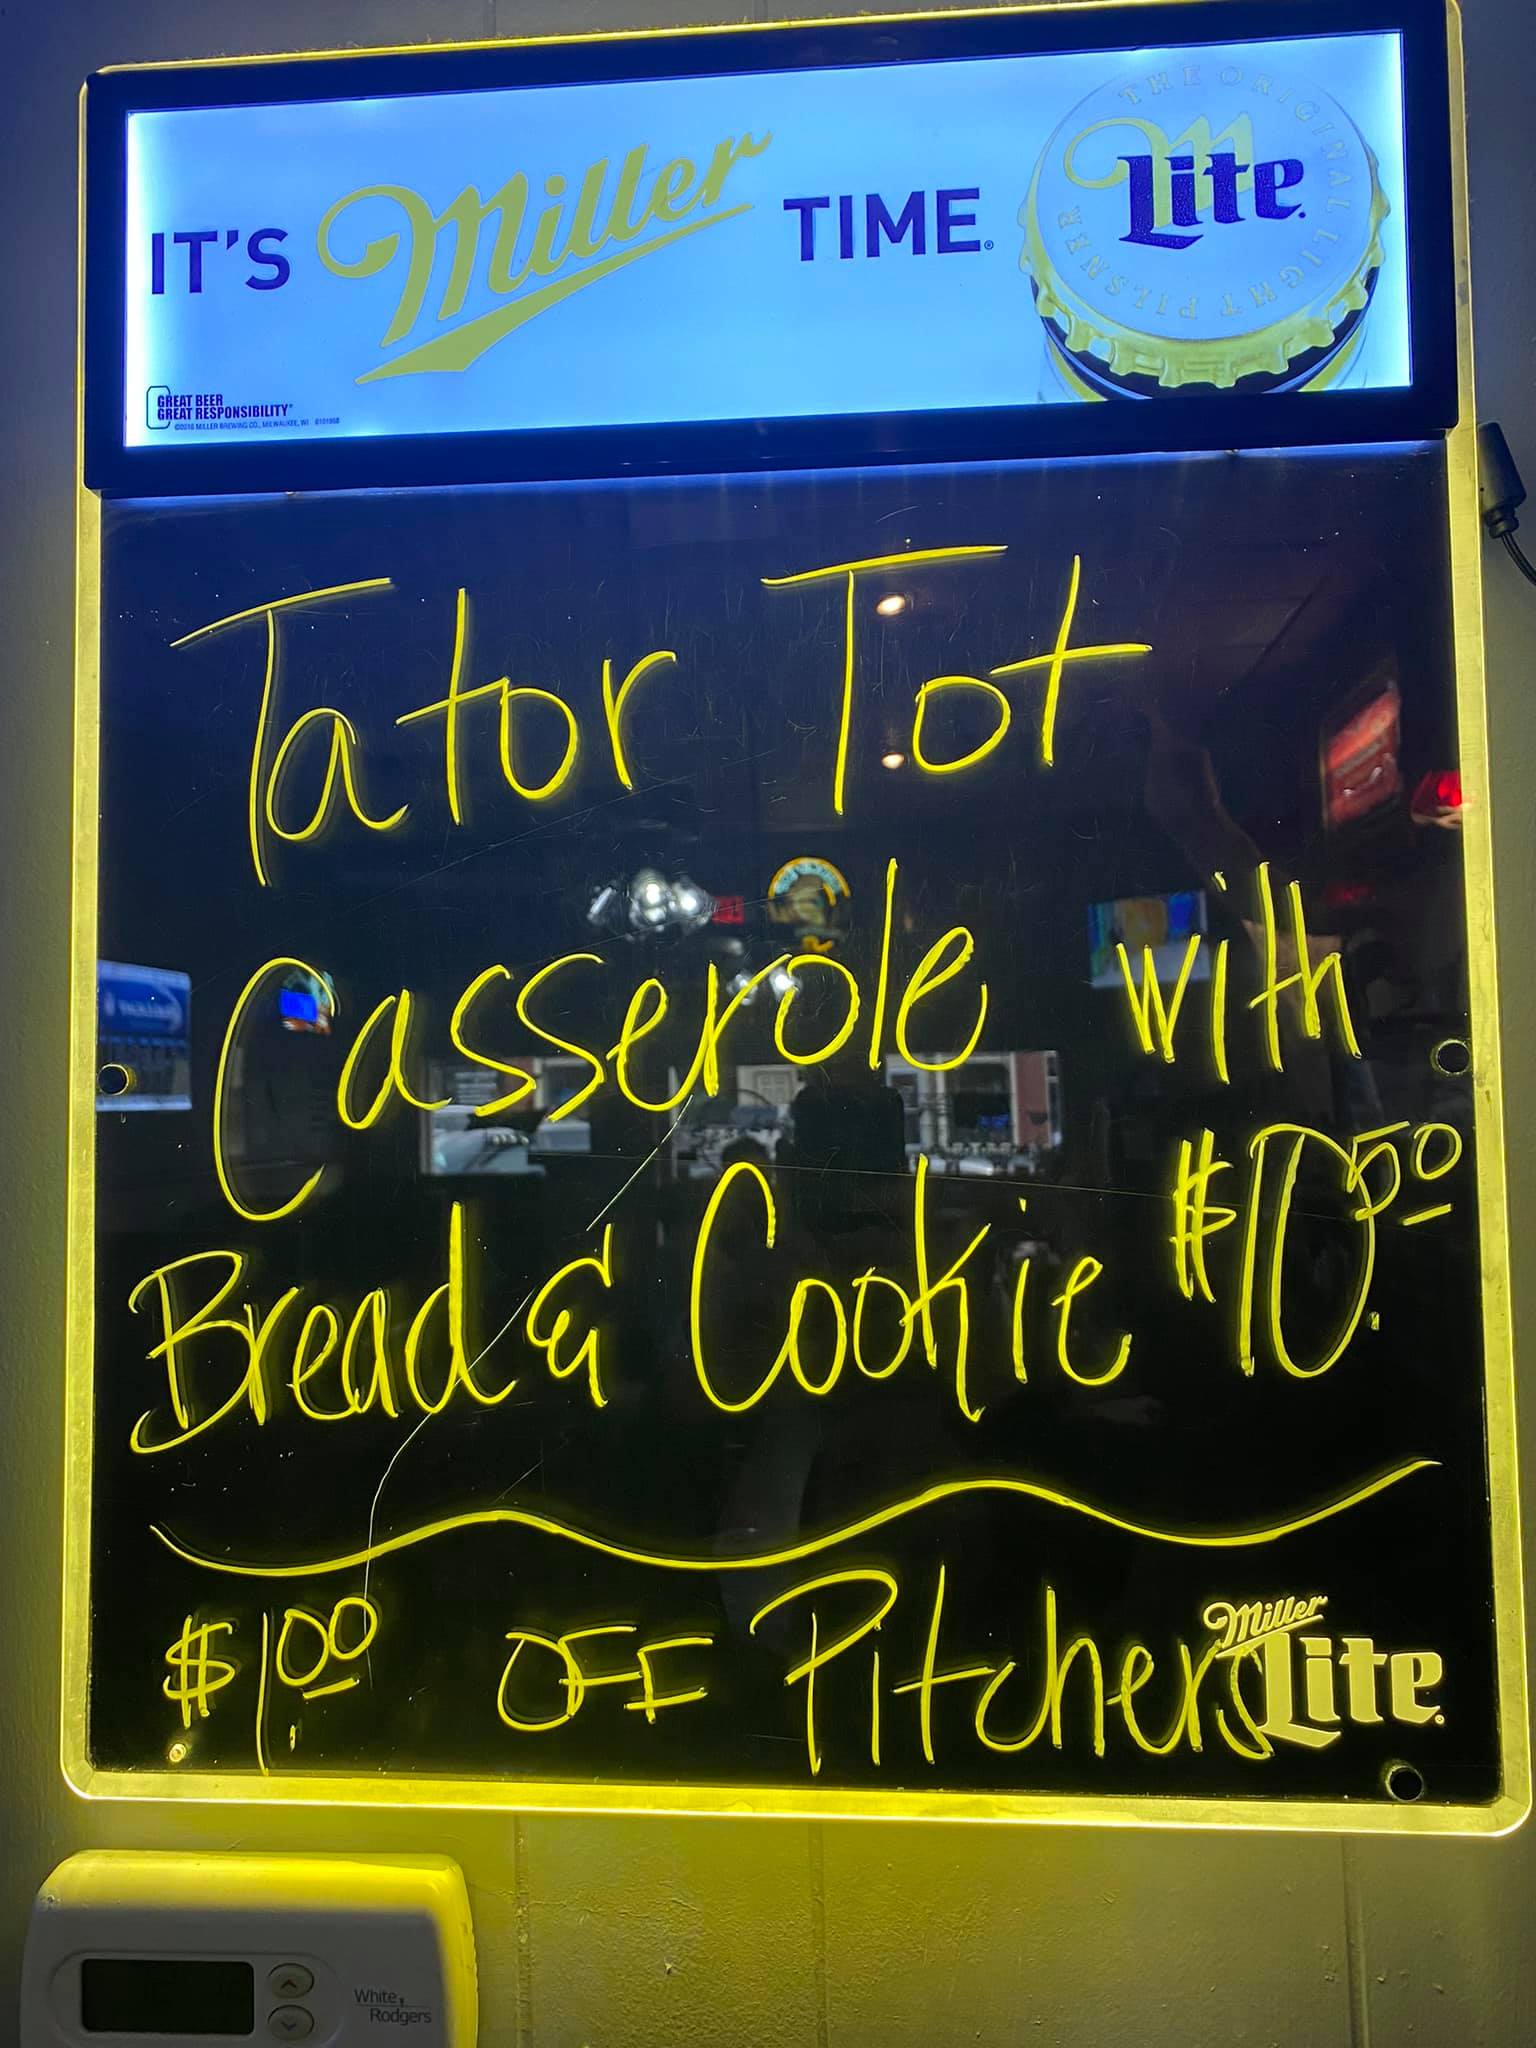 IT'S Miller TIME.®
THE ORIGINAL LIGHT PILSNER
Lite
GREAT BEER
GREAT RESPONSIBILITY®
©2016 MILLER BREWING CO., MILWAUKEE, WI
Tator Tot
Casserole with
Bread & Cookie $10.50
$1.00 OFF Pitchers
Miller
Lite®
White
Rodgers